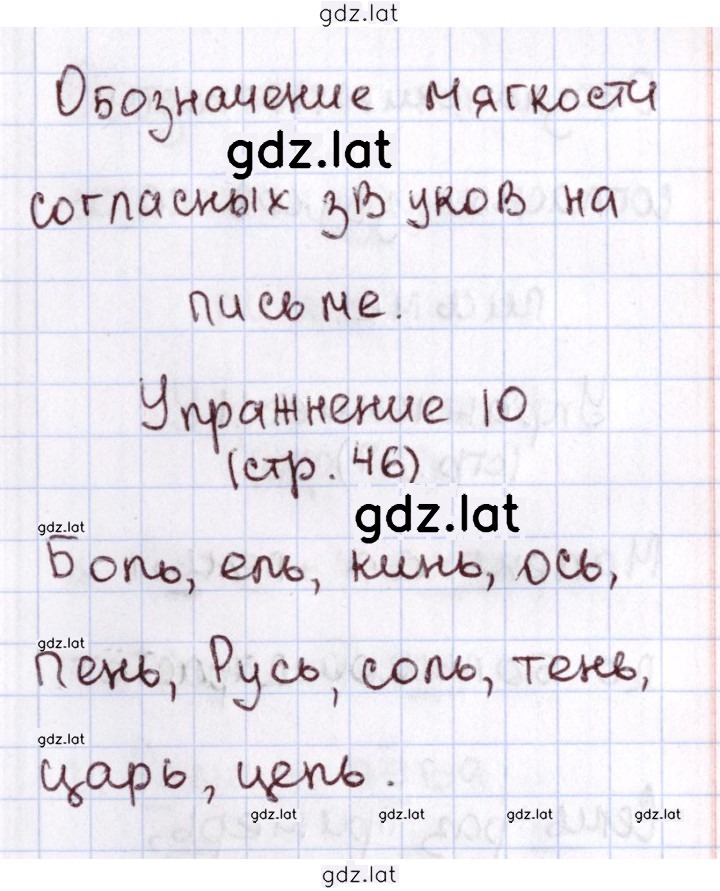 gdz.lat
Обозначение мягкости
gdz.lat
согласных звуков на
письме.
Упражнение 10
(стр. 46)
gdz.lat
gdz.lat
Боль, ель, кинь, ось,
gdz.lat
пень, Русь, соль, тень,
gdz.lat
царь, цепь.
gdz.lat gdz.lat gdz.lat gdz.lat
gdz.lat